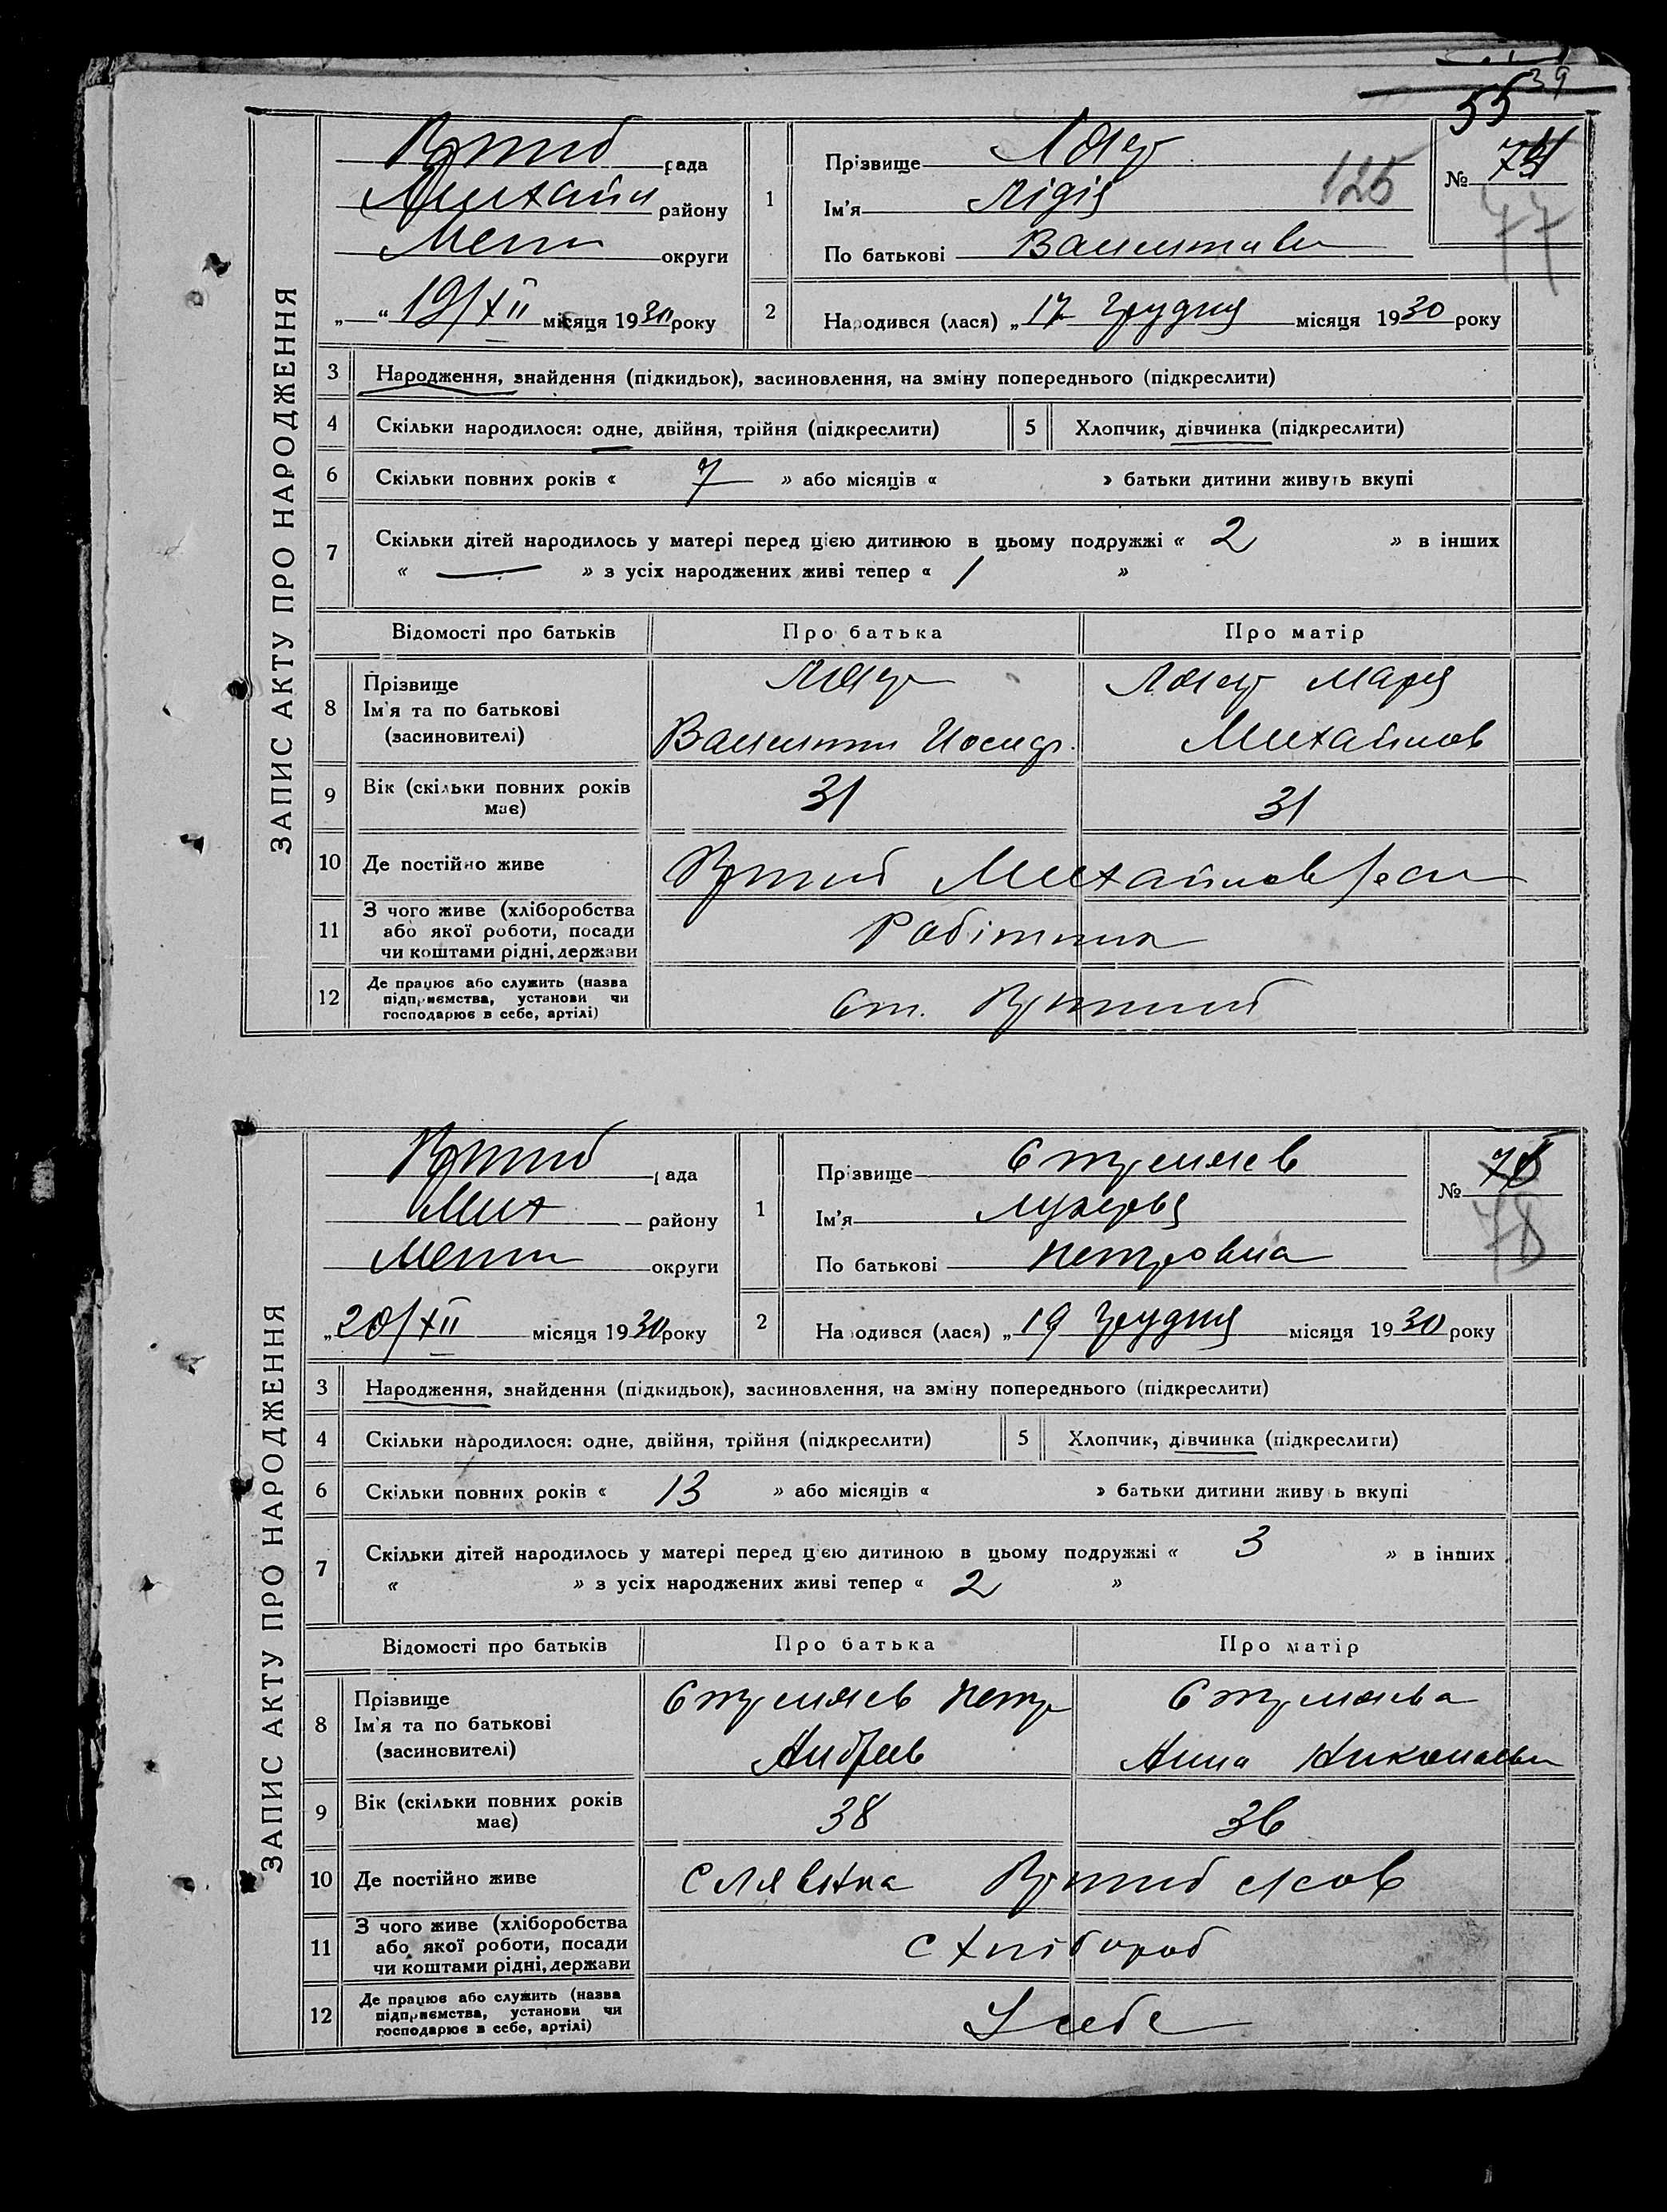 39
55
ЗАПИС АКТУ ПРО НАРОДЖЕННЯ
рада
Михайл району
Мелит округи
„ “ 19/XII місяця 1930 року
1
Прізвище
Ім'я Лідія
По батькові Валентинів
125
№ 74
77
2
Народився (лася) „17 грудня місяця 1930 року
3 Народження, знайдення (підкидьок), засиновлення, на зміну попереднього (підкреслити)
4 Скільки народилося: одне, двійня, трійня (підкреслити)
5 Хлопчик, дівчинка (підкреслити)
6 Скільки повних років « 7 » або місяців « » батьки дитини живуть вкупі
7 Скільки дітей народилось у матері перед цією дитиною в цьому подружжі « 2 » в інших
« — » з усіх народжених живі тепер « 1 »
Відомості про батьків Про батька Про матір
8 Прізвище
Ім'я та по батькові
(засиновителі)
Марія
Валентин Иосиф.
Михайлов
9 Вік (скільки повних років має) 31 31
10 Де постійно живе
11 З чого живе (хліборобства
або якої роботи, посади
чи коштами рідні, держави
Робітник
12 Де працює або служить (назва
підприємства, установи чи
господарює в себе, артілі)
Ст.
ЗАПИС АКТУ ПРО НАРОДЖЕННЯ
рада
Мих району
Мелит округи
„20/XII місяця 1930 року
1
Прізвище Стремяев
Ім'я Лукерья
По батькові Петровна
№
78
2
Народився (лася) „19 грудня місяця 1930 року
3 Народження, знайдення (підкидьок), засиновлення, на зміну попереднього (підкреслити)
4 Скільки народилося: одне, двійня, трійня (підкреслити)
5 Хлопчик, дівчинка (підкреслити)
6 Скільки повних років « 13 » або місяців « » батьки дитини живуть вкупі
7 Скільки дітей народилось у матері перед цією дитиною в цьому подружжі « 3 » в інших
« » з усіх народжених живі тепер « 2 »
Відомості про батьків Про батька Про матір
8 Прізвище
Ім'я та по батькові
(засиновителі)
Стремяев Петр
Андреев
Стремяева
Анна Николаевн
9 Вік (скільки повних років має) 38 36
10 Де постійно живе
11 З чого живе (хліборобства
або якої роботи, посади
чи коштами рідні, держави
С хлібороб
12 Де працює або служить (назва
підприємства, установи чи
господарює в себе, артілі)
У себе